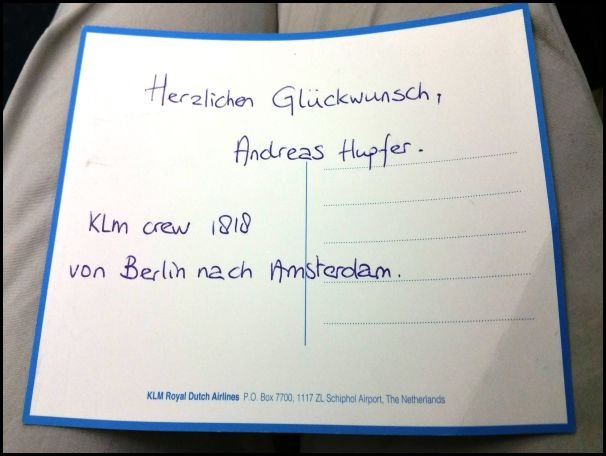 Herzlichen Glückwunsch,
Andreas Hupfer.
KLM crew 1818
von Berlin nach Amsterdam.
KLM Royal Dutch Airlines P.O. Box 7700, 1117 ZL Schiphol Airport, The Netherlands